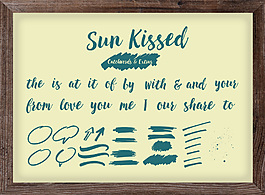 Sun Kissed
Catchwords & Extras
the is at it of by with & and your
from love you me I our share to